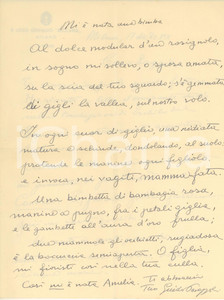 Mi è nata una bimba
Al dolce modular d'un rosignolo,
in sogno mi sollevo, o sposa amata,
su la scia del tuo sguardo; s'è gemmata
di gigli la vallea, sul nostro volo.
In ogni cuor di giglio, una
matura e schiude, dondolando, al suolo
protende le manine ogni figliolo
e invoca, nei vagiti, mamma fata.
Una bimbetta di bambagia rosa,
manine a pugno, fra i petali giglia,
e le gambette all'aura d'oro frulla;
due mammole gli occhietti, rugiadosa
è la boccuccia semiaperta. O figlia,
mi fioristi così nella tua culla.
Così mi è nata Amelia. Ti abbraccio
Tuo